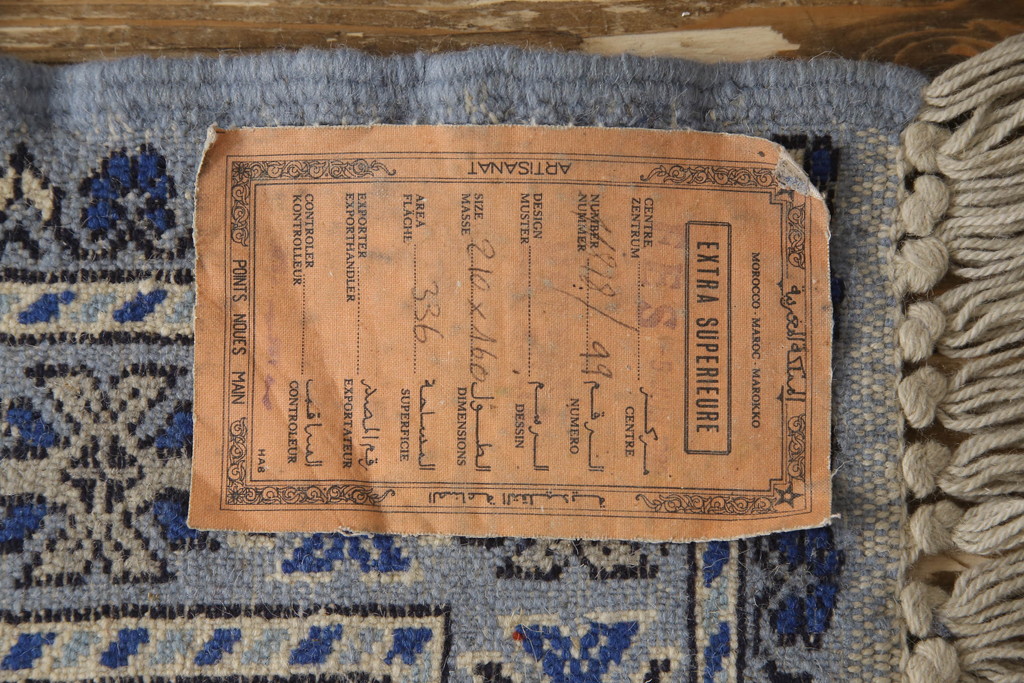 المملكة المغربية
MOROCCO - MAROC - MAROKKO
EXTRA SUPERIEURE
FES
CENTRE مركز
ZENTRUM CENTRE
NUMBER 99 الرقم
NUMMER NUMERO
DESIGN الرسم
MUSTER DESSIN
SIZE 210 x 160 الطول
MASSE DIMENSIONS
AREA 336 المساحة
FLÄCHE SUPERFICIE
EXPORTER
EXPORTHANDLER EXPORTATEUR
CONTROLER المراقب
KONTROLLEUR CONTROLEUR
POINTS NOUES MAIN
HAB
ARTISANAT
الصناعة التقليدية